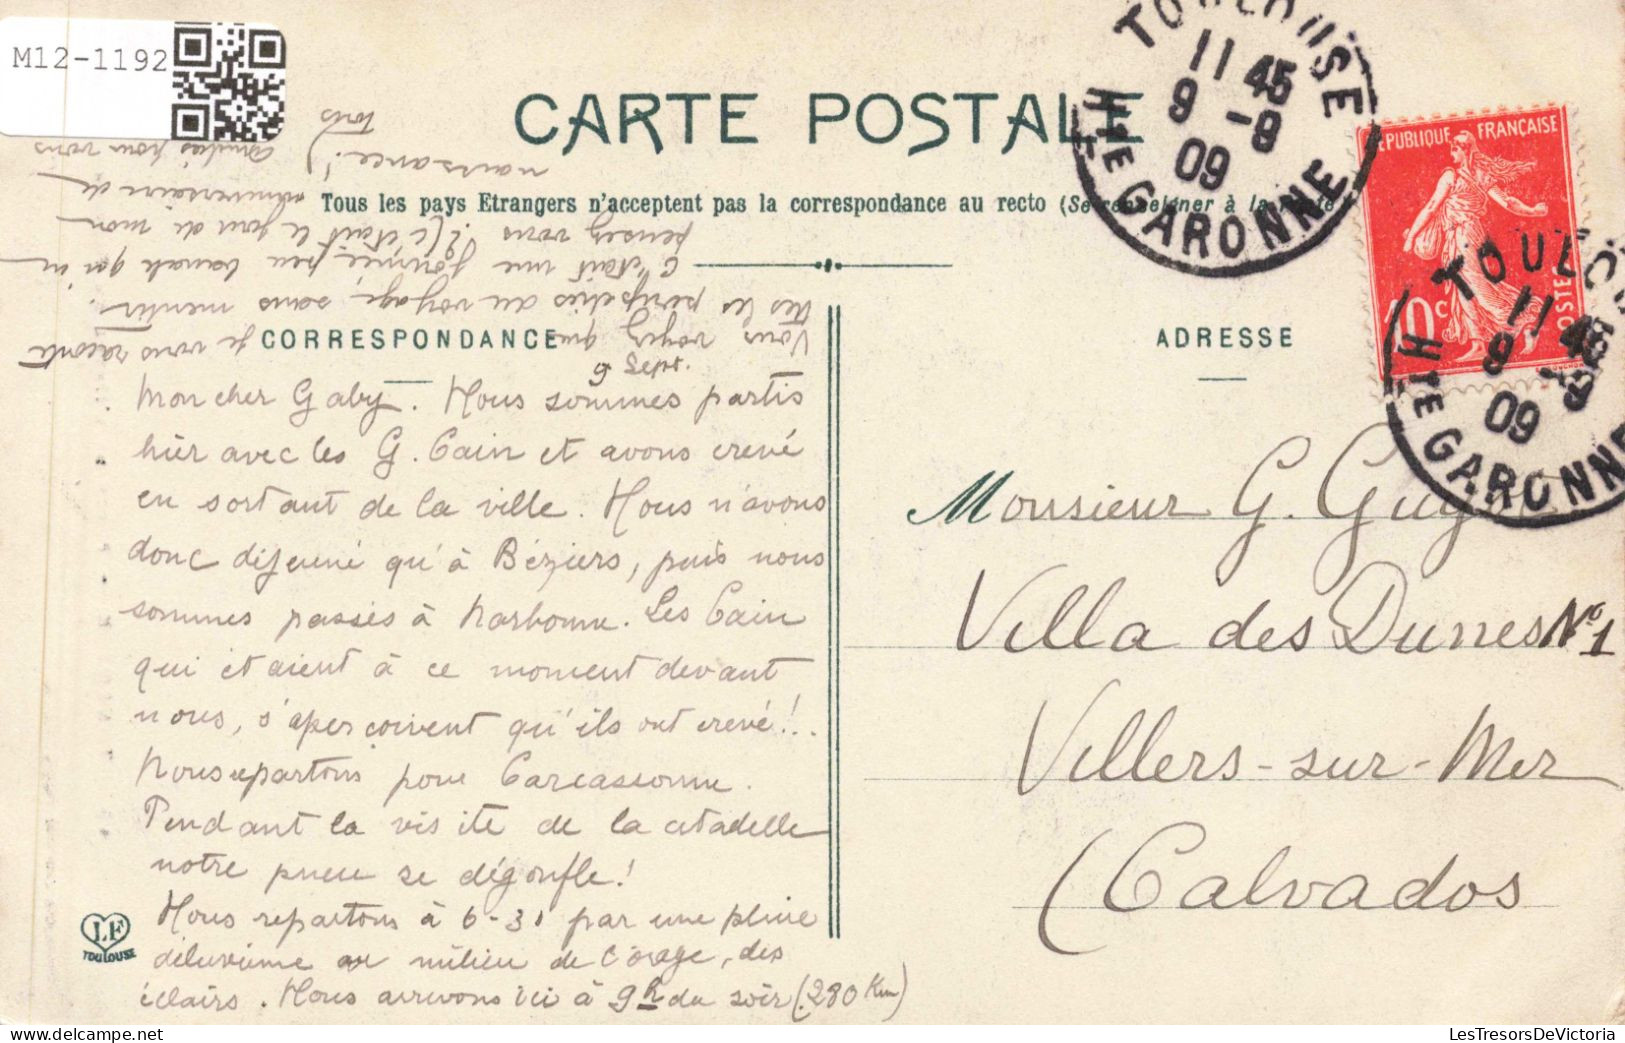 M12-1192
CARTE POSTALE
Tous les pays Etrangers n'acceptent pas la correspondance au recto (Se renseigner à la
CORRESPONDANCE
ADRESSE
TOULOUSE
11 45
9 -9
09
Hte GARONNE
REPUBLIQUE FRANÇAISE
10c
POSTES
TOULO
11 45
9 -9
09
Hte GARONNE
9 Sept.
Mon cher Gaby. Nous sommes partis
hier avec les G. Cain et avons crevé
en sortant de la ville. Nous n'avons
donc déjeuné qu'à Béziers, puis nous
sommes passés à Narbonne. Les Cain
qui étaient à ce moment devant
nous, s'aperçoivent qu'ils ont crevé!..
Nous repartons pour Carcassonne.
Pendant la visite de la citadelle
notre pneu se dégonfle!
Nous repartons à 6-30 par une pluie
diluvienne au milieu de l'orage, des
éclairs. Nous arrivons ici à 9h du soir (280 Km)
Vous voyez que je vous raconte
ttes les péripéties du voyage, sans mentir.
C'était une journée peu banale qu'en
pensez vous ? (c'était le jour de mon
anniversaire de
naissance!)
Amitiés pour vous
tous
Monsieur G. Guyot
Villa des Dunes No 1
Villers-sur-Mer
(Calvados
LF
TOULOUSE
LesTresorsDeVictoria